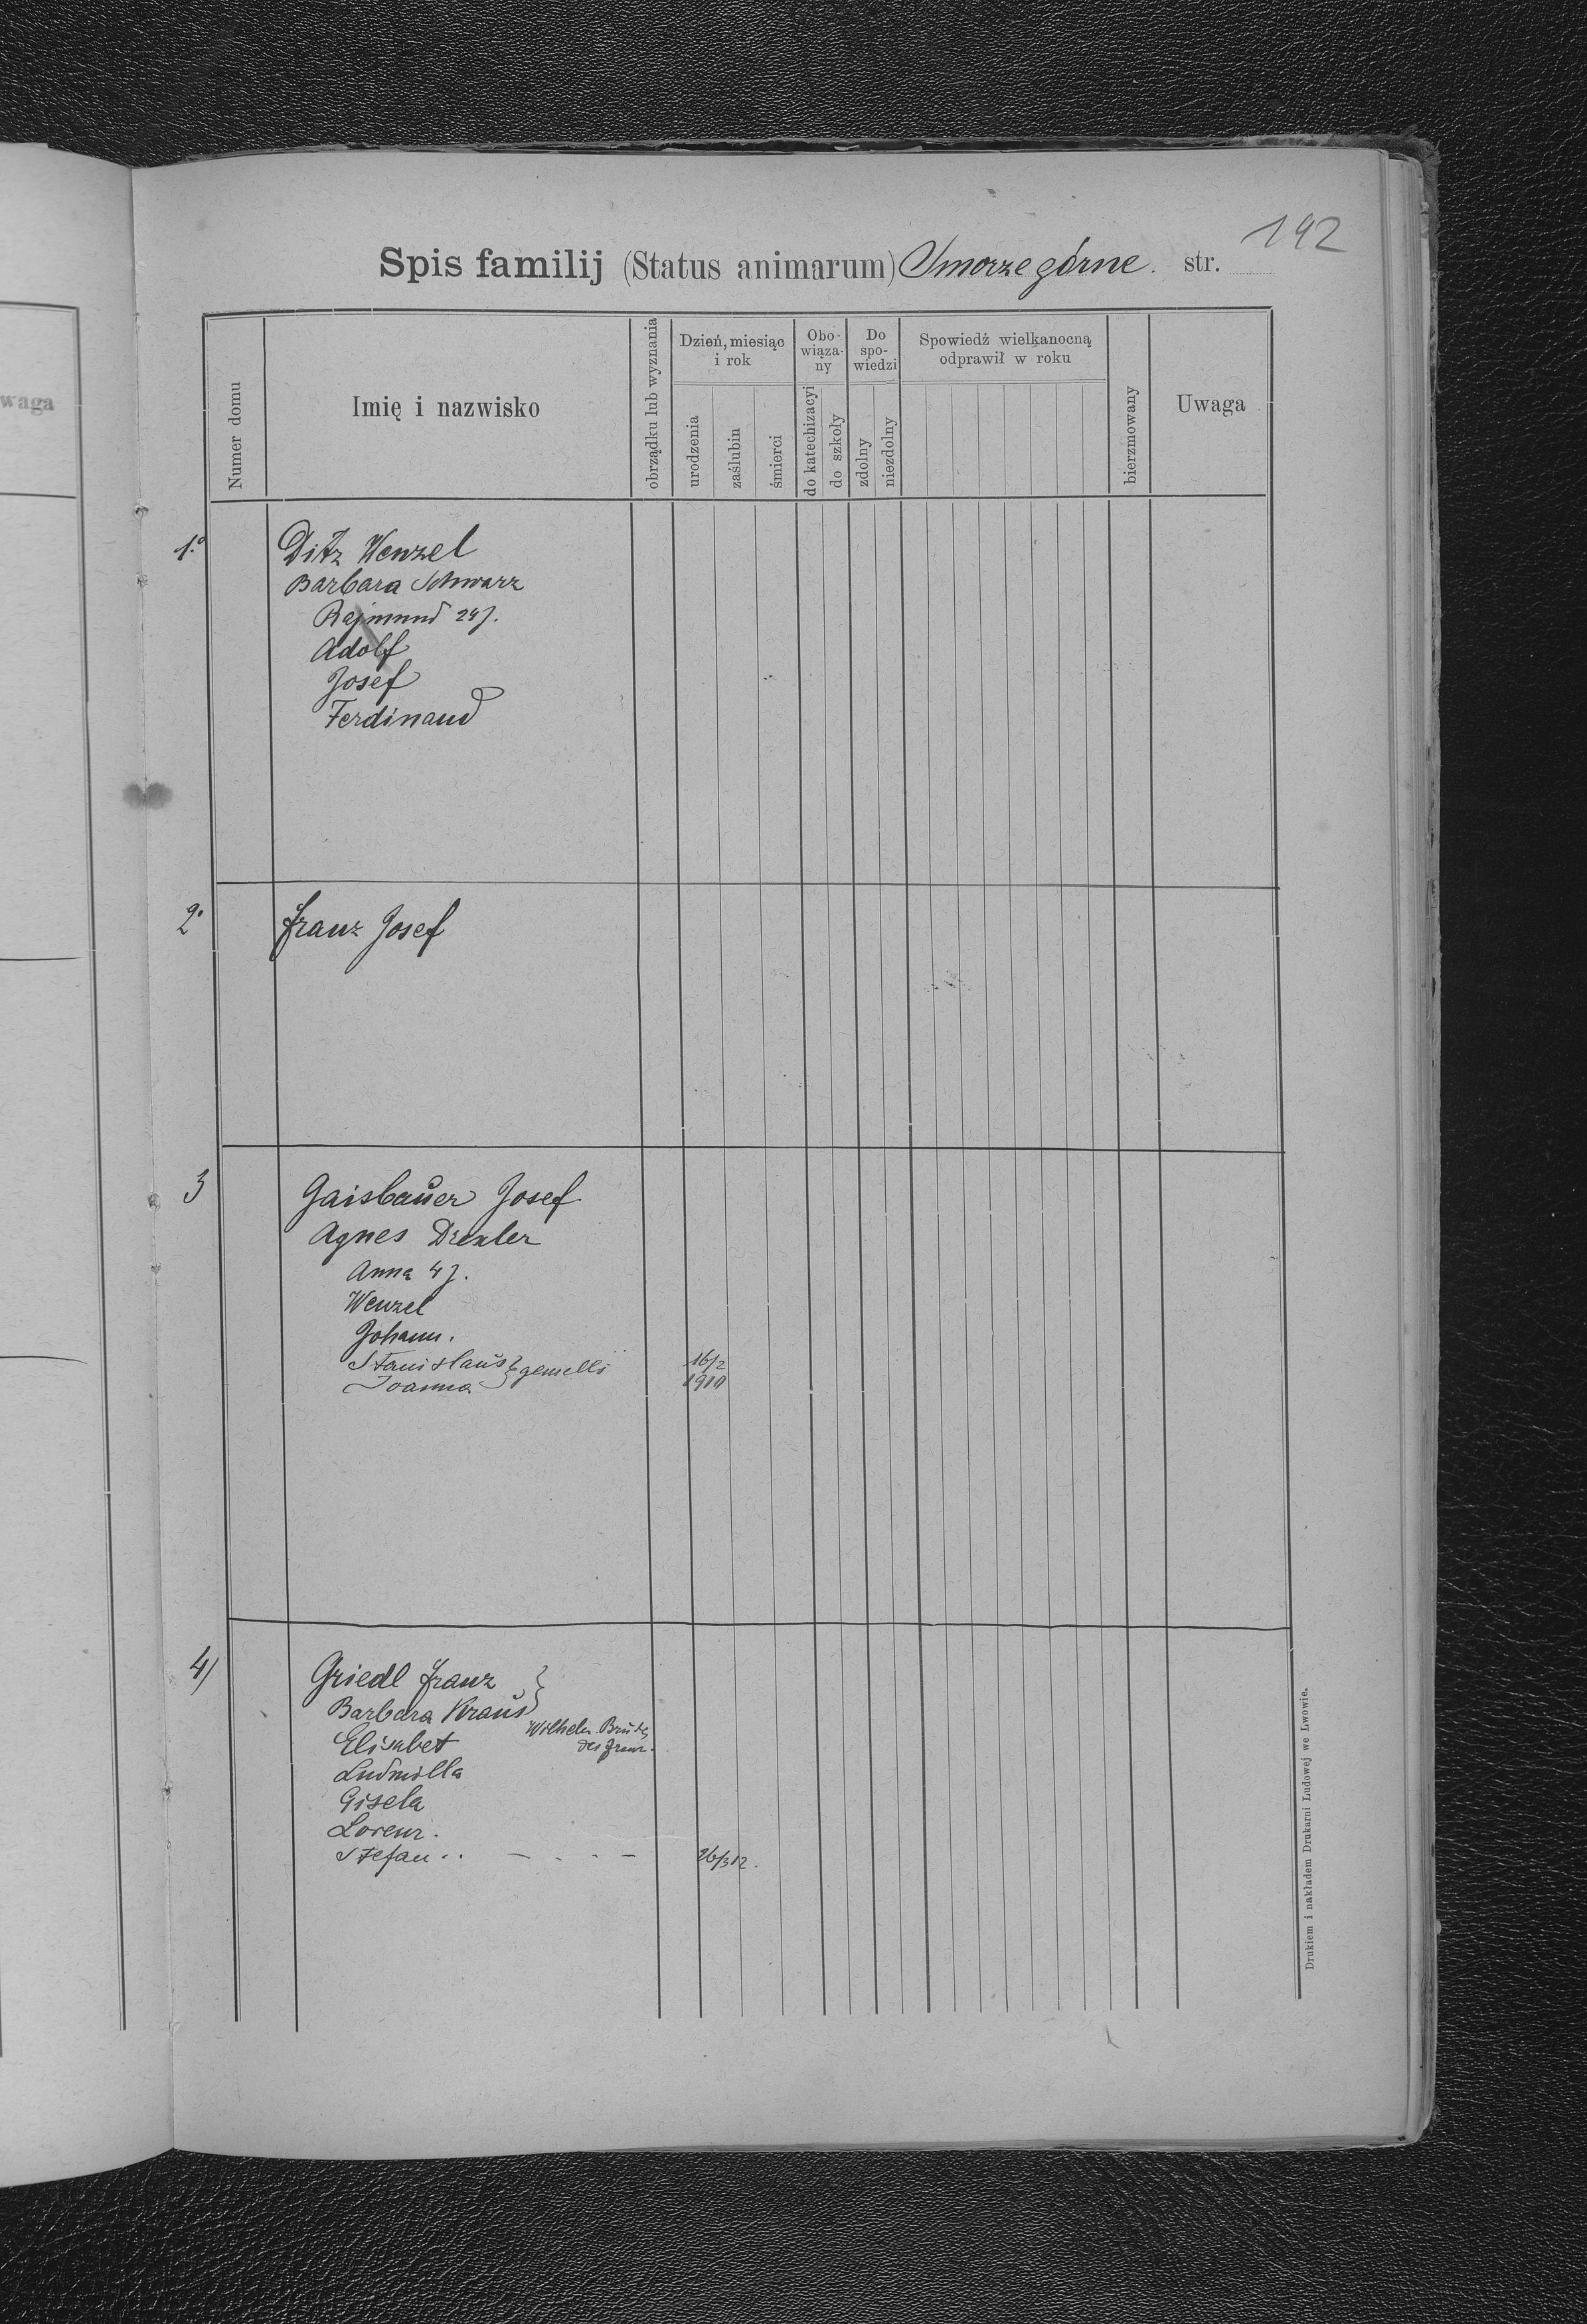 192
Spis familij (Status animarum) Smorze górne. str.
waga
Numer domu
Imię i nazwisko
obrządku lub wyznania
Dzień, miesiąc i rok
urodzenia
zaślubin
śmierci
Obowiązany
do katechizacyi
do szkoły
Do spowiedzi
zdolny
niezdolny
Spowiedź wielkanocną odprawił w roku
bierzmowany
Uwaga
1.° Ditz Wenzel
Barbara Schwarz
Rajmund 24 J.
Adolf
Josef
Ferdinand
2° Franz Josef
3 Gaisbauer Josef
Agnes Drexler
Anna 4 J.
Wenzel
Johann.
Stanislaus } gemelli 16/2
Joanna 1910
4/ Griedl Franz }
Barbara Kraus
Wilhelm Bruder
des Franz.
Elisabet
Ludmilla
Gisela
Lorenz.
Stefan . . – . . . – 26/3 12.
Drukiem i nakładem Drukarni Ludowej we Lwowie.